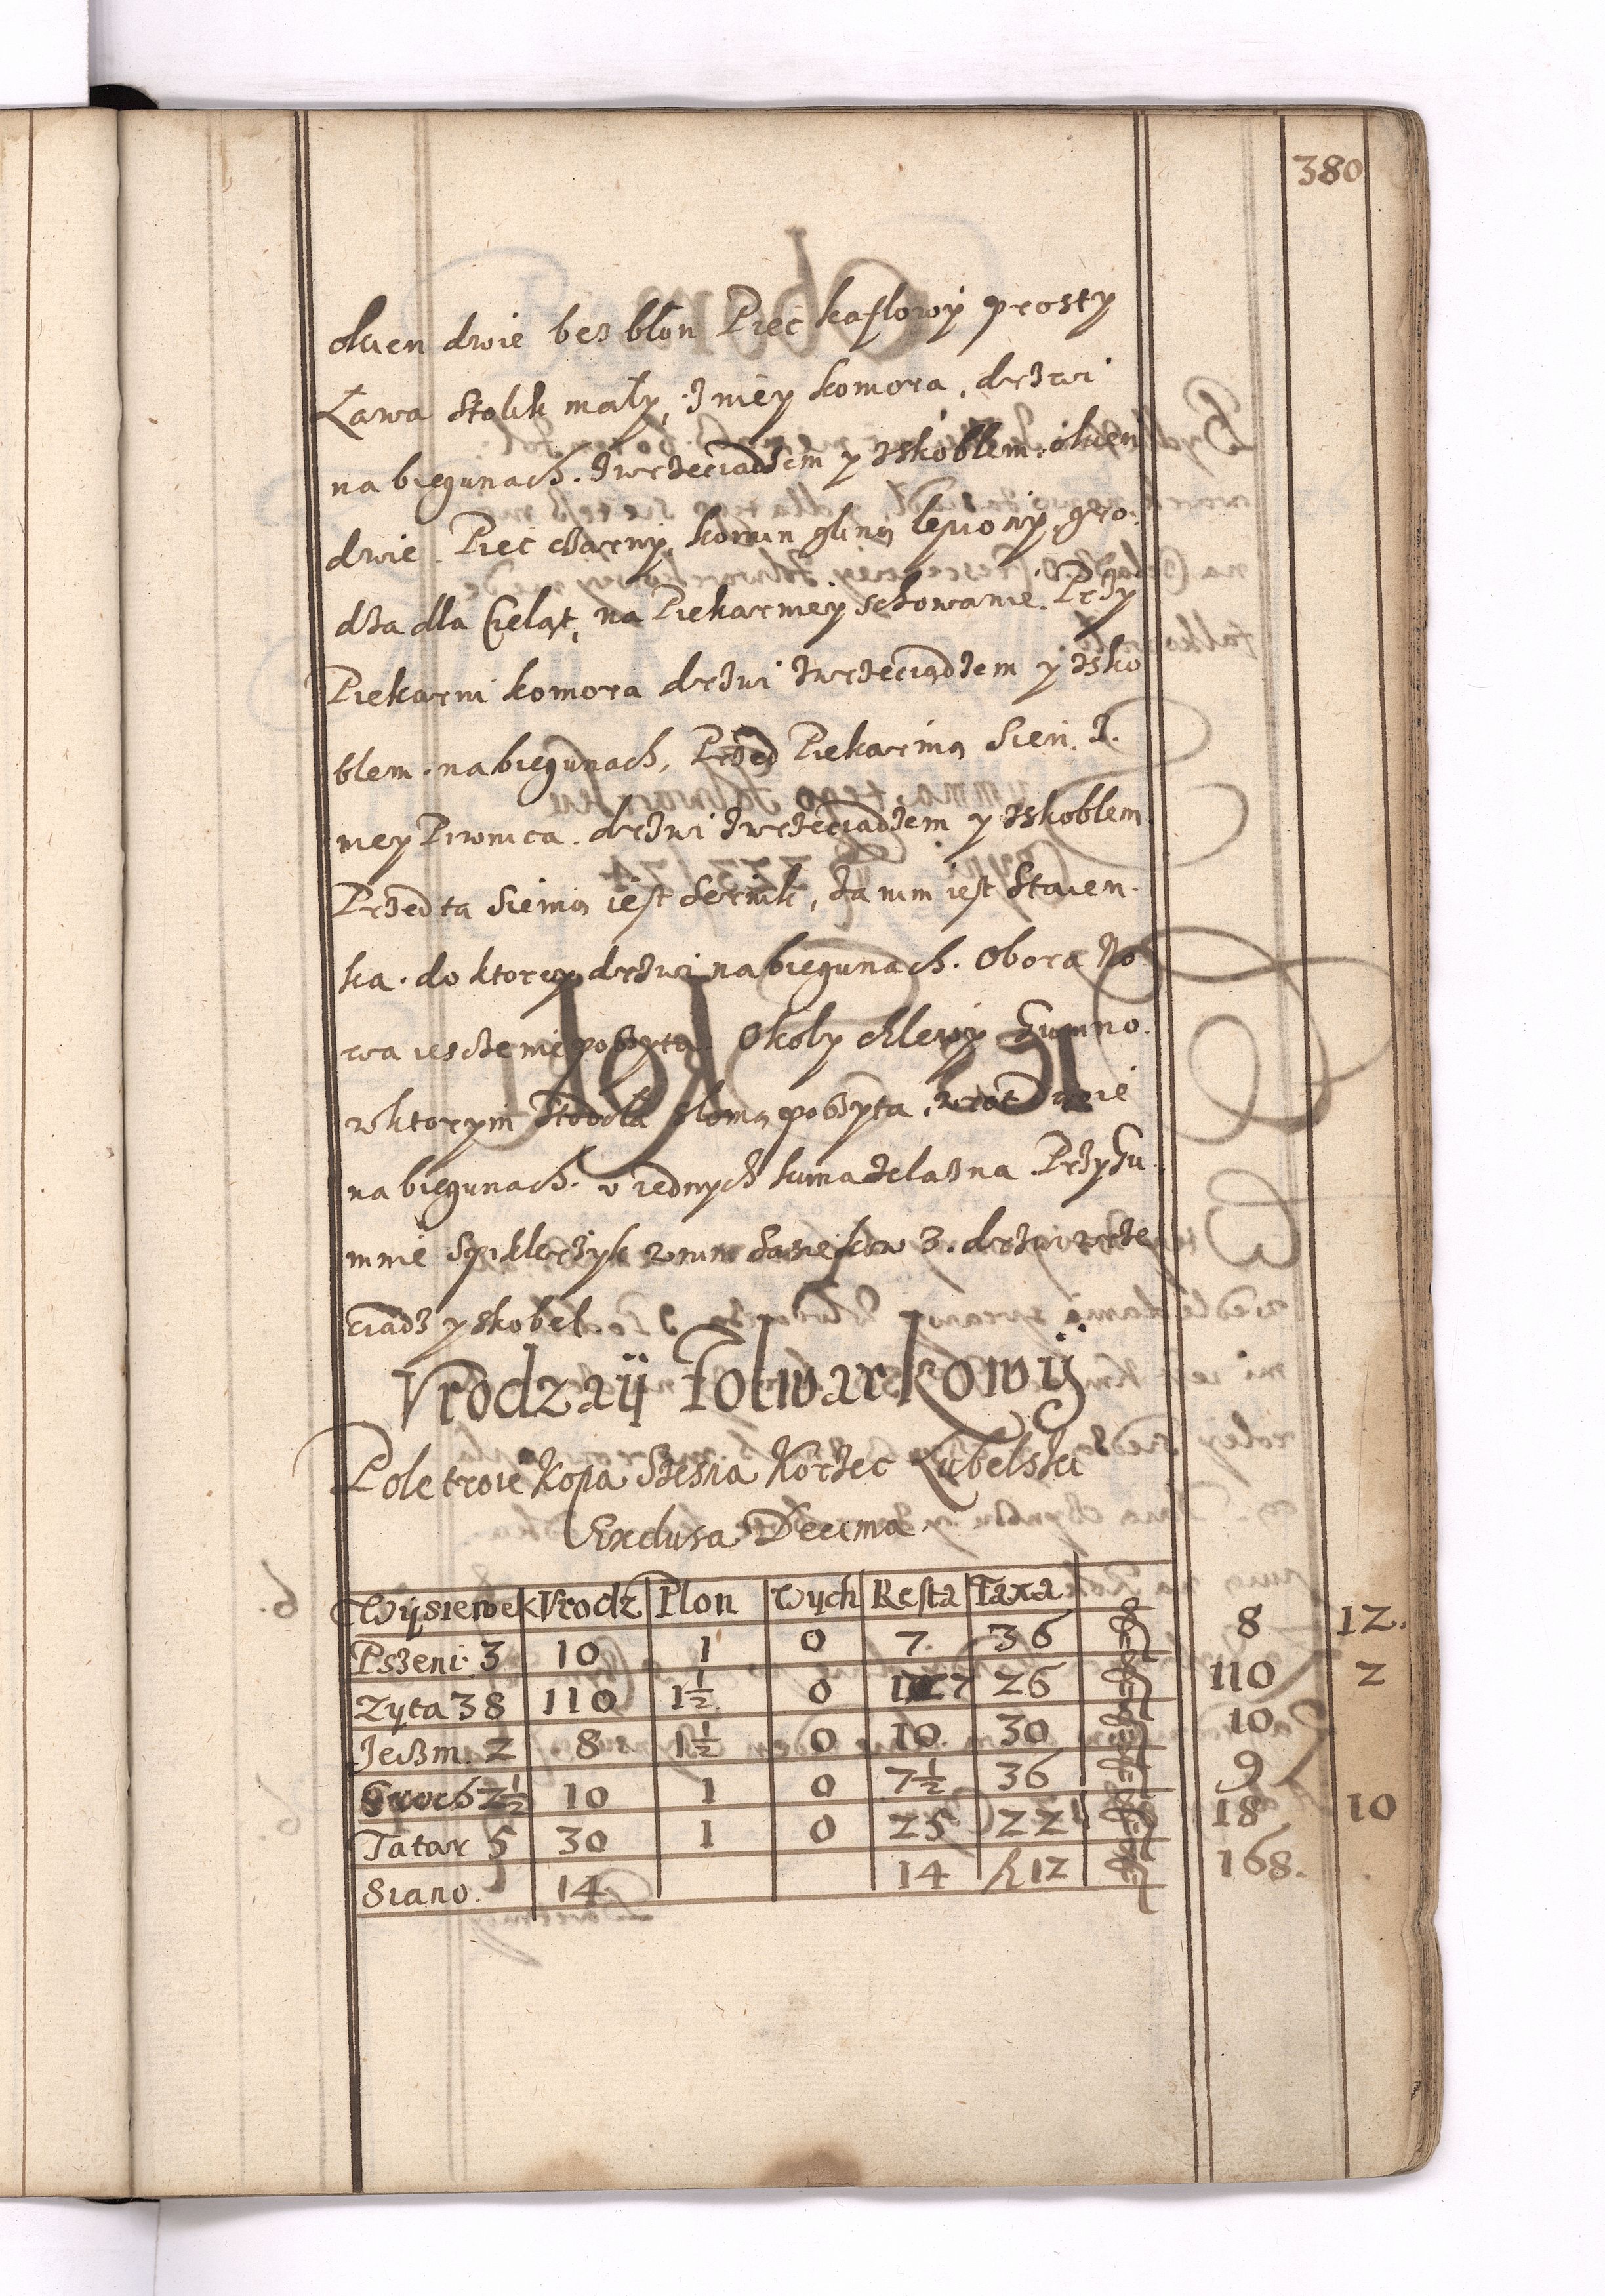 380
okien dwie bez błon Piec kaflowy prosty
Ława Stolik mały, z niey komora, drzwi
na biegunach. zwrzeciądzem y zskoblem. okien
dwie. Piec czarny, komin gliną lepiony, gro-
dza dla Cieląt, na Piekarniey schowanie. Przy
Piekarni komora drzwi zwrzeciądzem y zsko
blem. na biegunach, Przed Piekarnią Sień. Z.
niey Piwnica. drzwi zwrzeciądzem y zskoblem
Przed ta Sienią iest Sernik, za nim iest Staien-
ka. do ktorey drzwi na biegunach. Obora No
wa ieszcze nie poszyta. Okoły chlewy Gumno.
w ktorym Stodoła słomą poszyta, wrot dwie
na biegunach. v iednych kuna żelazna Przy Gu
mnie Spiklerzyk w nim Sąsieków 3. drzwi wrze
ciadz y skobel.
Vrodzaÿ Folwarkowÿ
Pole troie Kopa Szesna Korzec Lubelski
Exclusa Decima.
Wysiewek Vrodz Plon Wych Resta Taxa
Pszeni. 3 10 1 0 7. 36 8 12.
Zyta 38 110 1½ 0 127 26 110 2
Jeczm. 2 8 1½ 0 10 30 10
Groch 2½ 10 1 0 7½ 36 9
Tatar 5 30 1 0 25 22 18 10
Siano. 14 14 12 168.